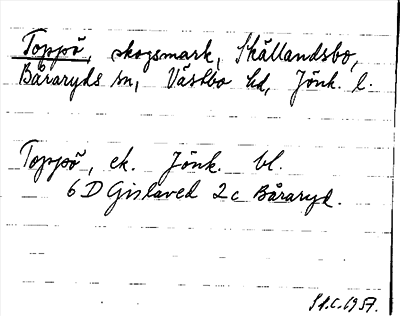 Toppö, skogsmark, Skällandsbo,
Båraryds sn, Västbo hd, Jönk. l.
Toppö, ek. Jönk. bl.
6 D Gislaved 2c Båraryd.
1957.